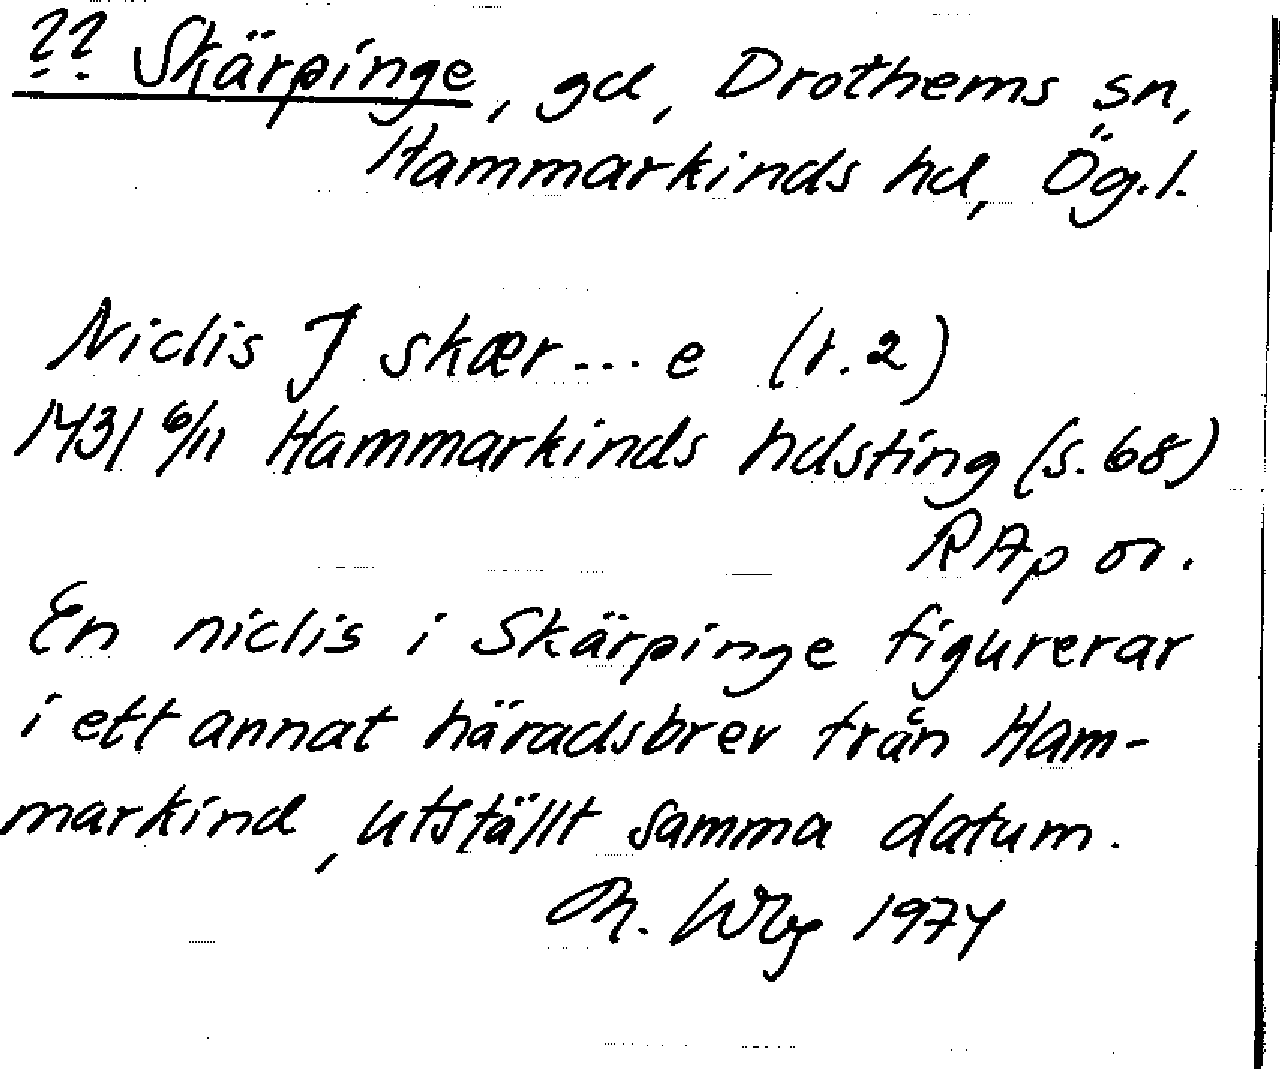 ?? Skärpinge, gd, Drothems sn,
Hammarkinds hd, Ög.l.
Niclis J skær... e (r.2)
1431 6/11 Hammarkinds hdsting (s.68)
RAp or.
En niclis i Skärpinge figurerar
i ett annat häradsbrev från Ham-
markind, utställt samma datum.
Wbg 1974